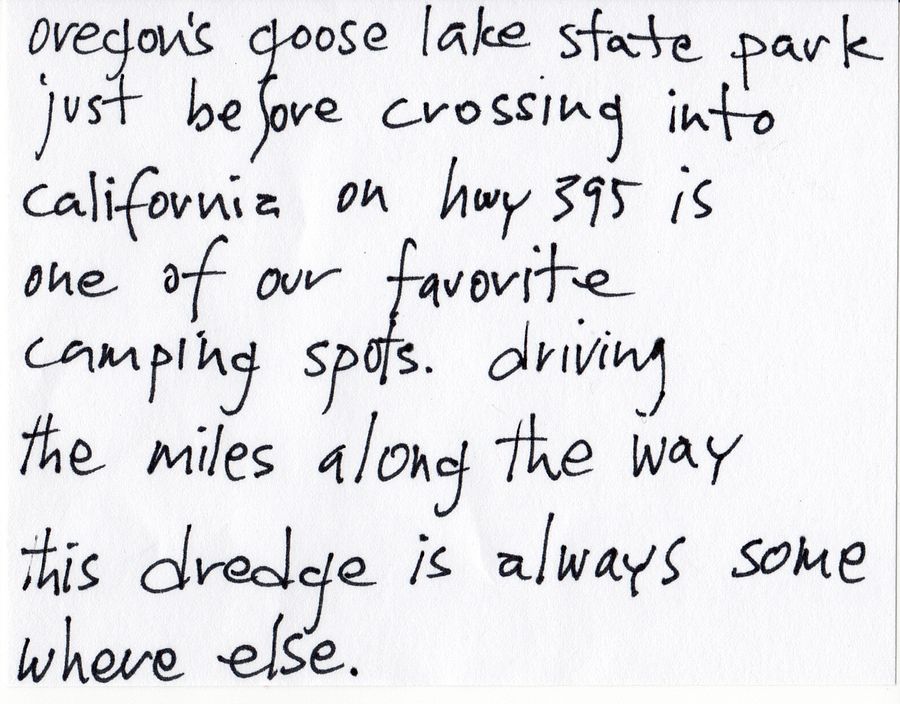 oregon's goose lake state park
just before crossing into
california on hwy 395 is
one of our favorite
camping spots. driving
the miles along the way
this dredge is always some
where else.